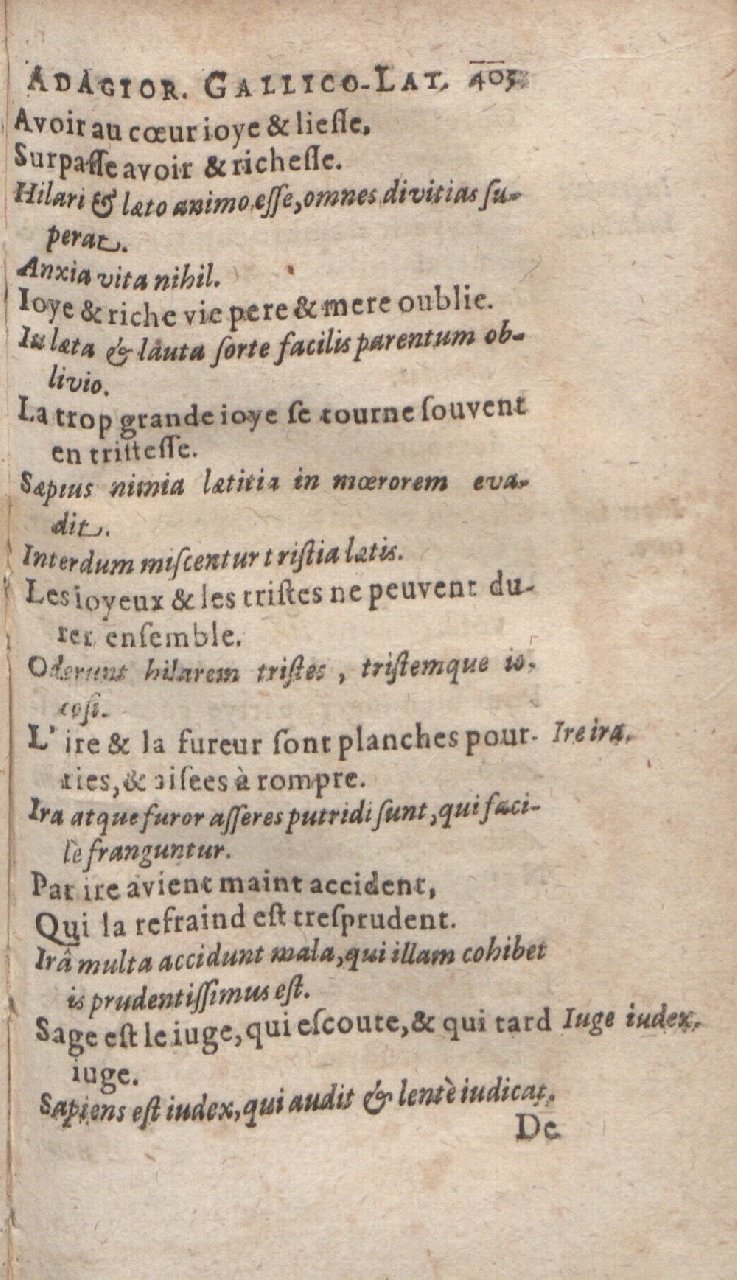 ADAGIOR. GALLICO-LAT. 405
Avoir au cœur ioye & liesse,
Surpasse avoir & richesse.
Hilari & læto animo esse, omnes divitias su-
perat.
Anxia vita nihil.
Ioye & riche vie pere & mere oublie.
In læta & lauta sorte facilis parentum ob-
livio.
La trop grande ioye se tourne souvent
en tristesse.
Sæpius nimia lætitia in mœrorem eva-
dit.
Interdum miscentur tristia lætis.
Les ioyeux & les tristes ne peuvent du-
rer ensemble.
Oderunt hilarem tristes, tristemque io-
cosi.
L'ire & la fureur sont planches pour- Ire ira.
ries, & aisees à rompre.
Ira atque furor asseres putridi sunt, qui faci-
lè franguntur.
Par ire avient maint accident,
Qui la refraind est tresprudent.
Irâ multa accidunt mala, qui illam cohibet
is prudentissimus est.
Sage est le iuge, qui escoute, & qui tard Iuge iudex.
iuge.
Sapiens est iudex, qui audit & lentè iudicat.
De